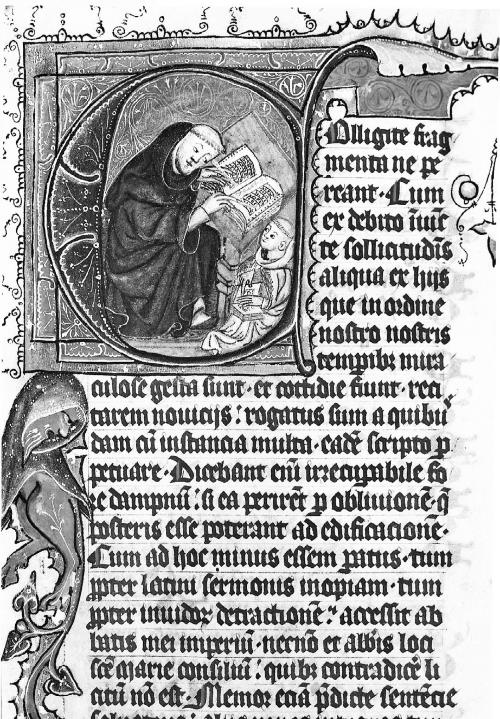 COlligite frag
menta ne pe
reant · Cum
ex debito iniūc
te sollicitudīs
aliqua ex hijs
que in ordine
nostro nostris
tempībꝫ mira
culose gesta sunt · et cottidie fiunt · reci
tarem nouicijs : rogatus sum a quibus
dam cū instancia multa · eadē scripto ꝑ
petuare · Dicebant enī irrecuꝑabile fo
re dampnū : si ea perirēt ꝑ obliuionē · q̄
posteris esse poterant ad edificacionē ·
Cum ad hoc minus essem ꝑatus · tum
ꝓpter latini sermonis inopiam · tum
ꝓpter inuidoꝝ detractionē : accessit ab
batis mei imperiū · necnō et abb̄is loci
scē marie consiliū : quibꝫ contradicē li
citū nō est · Memor eciā p̄dicte sentēcie